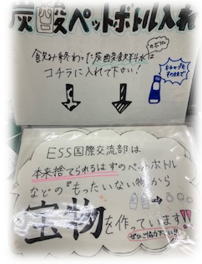 炭酸ペットボトル入れ
飲み終わった炭酸飲料水は
コチラに入れて下さい!
ESS国際交流部は
本来捨てられるはずのペットボトル
などの"もったいない物"から
宝物を作っています!!
ぜひご協力下さい!!